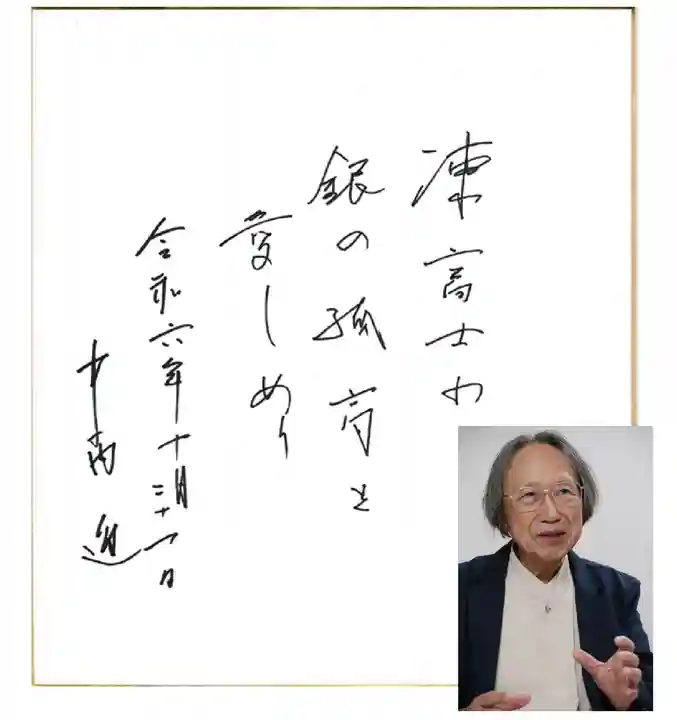 凍富士
銀の孤高を
愛しめり
令和六年十月三十一日
中西進